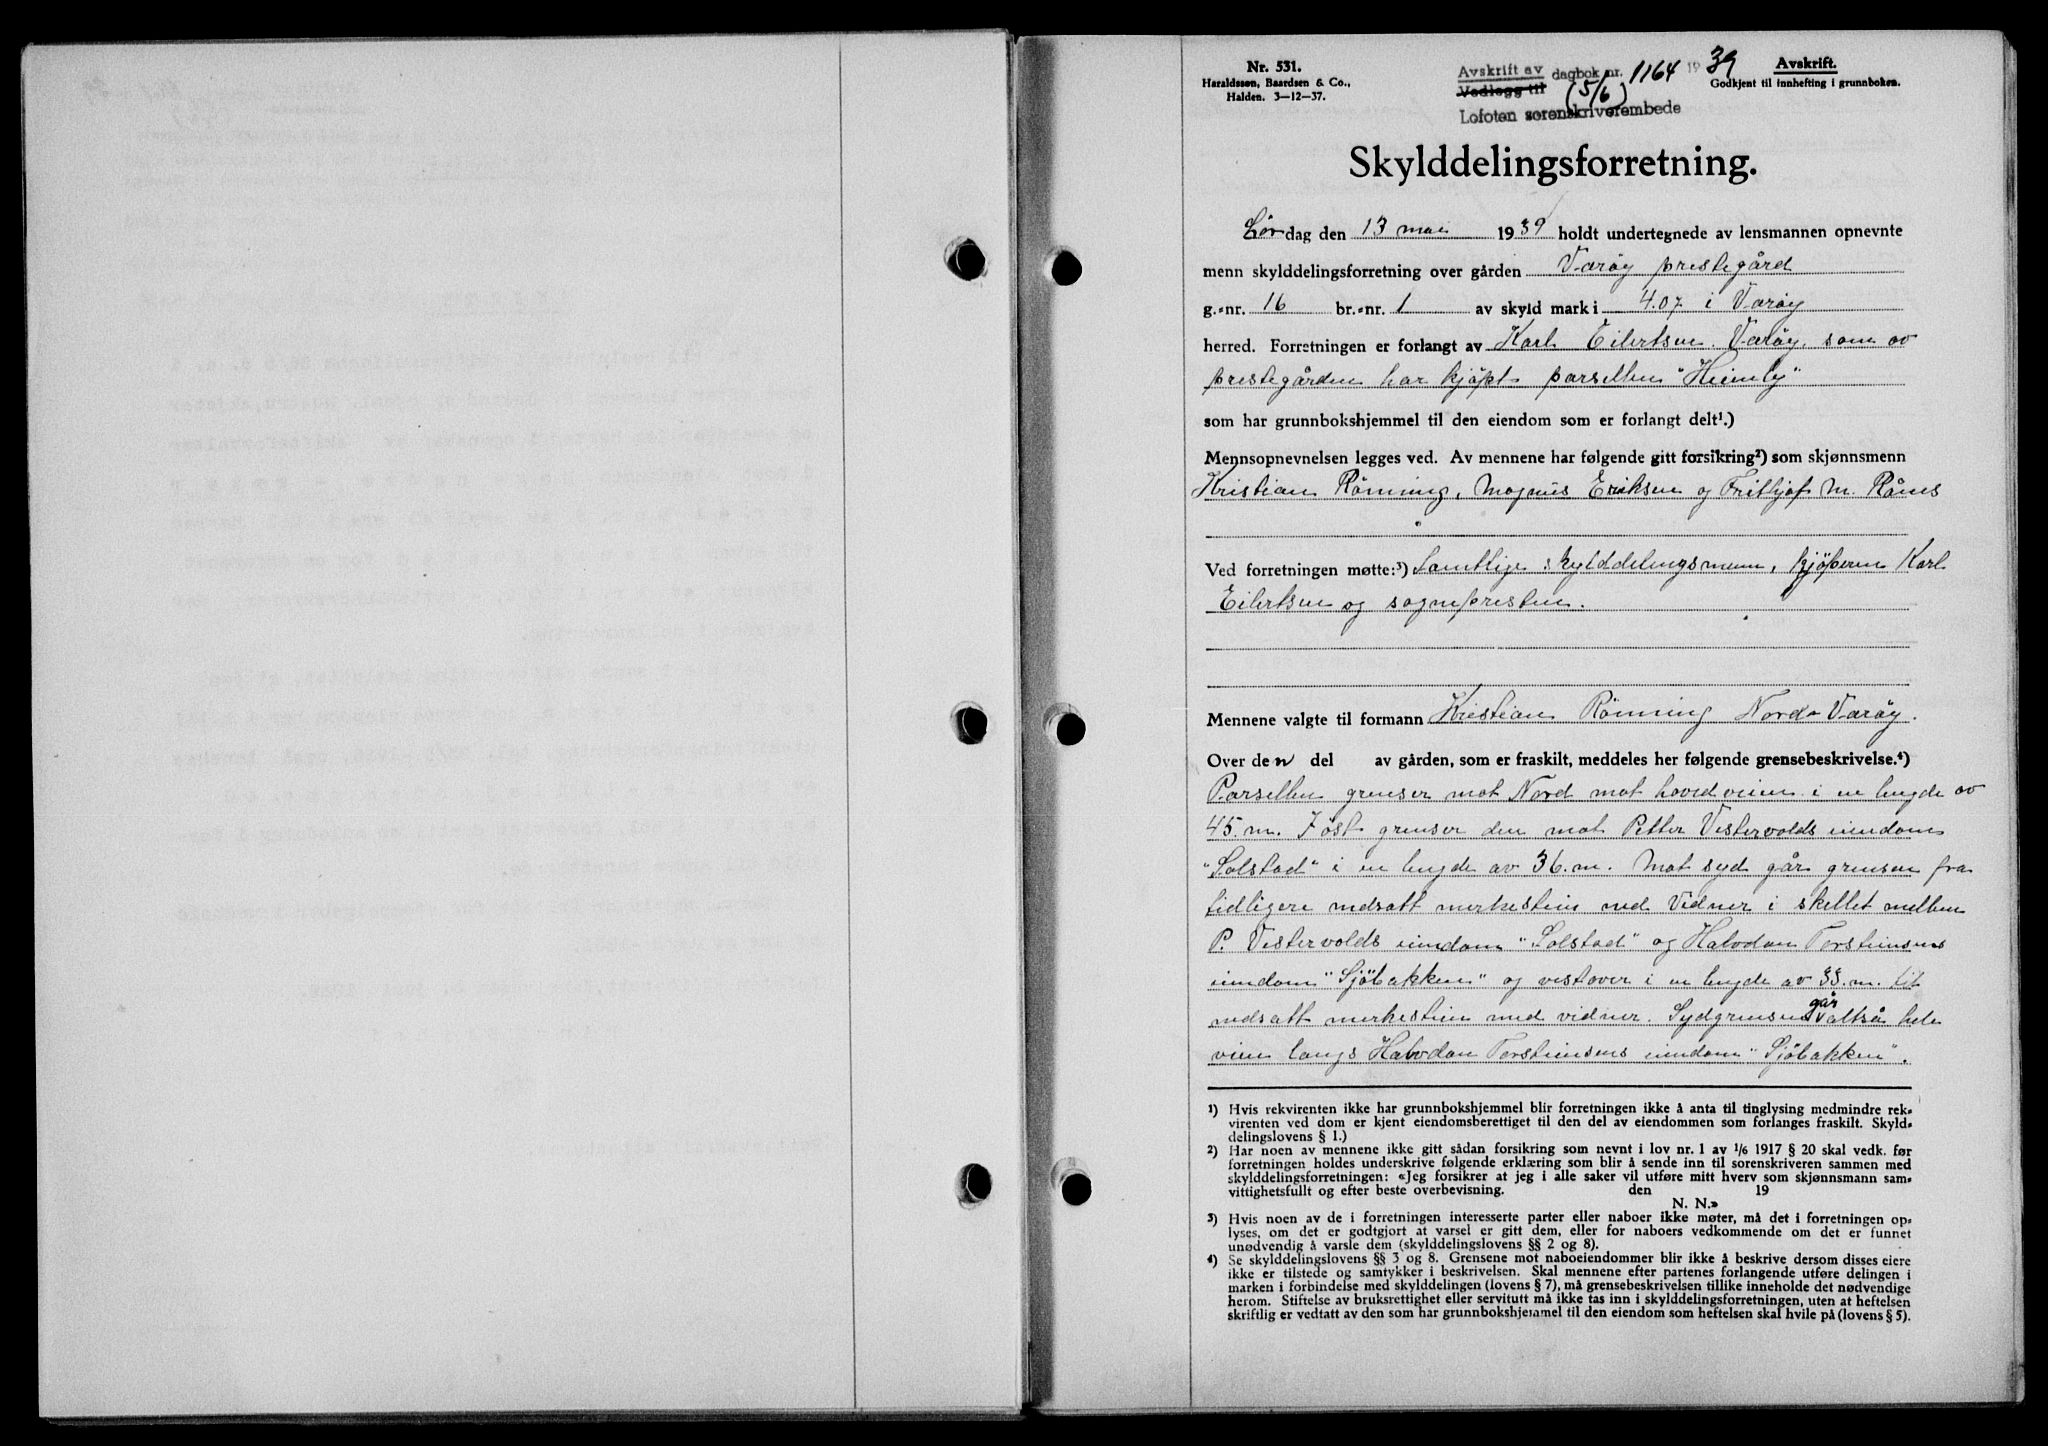 Nr. 531.
Haraldssøn, Baardsen & Co.,
Halden. 3-12-37.
Avskrift av
Vedlegg til
dagbok nr. 1164 1939
(5/6)
Lofoten sorenskriverembede
Avskrift.
Godkjent til innhefting i grunnboken.
Skylddelingsforretning.
Lørdag den 13 mai 1939 holdt undertegnede av lensmannen opnevnte
menn skylddelingsforretning over gården Værøy prestegård
g.-nr. 16 br.-nr. 1 av skyld mark i 4.07 i Værøy
herred. Forretningen er forlangt av Karl Eilertsen. Værøy, som av
prestegården har kjøpt parsellen "Heimly"
som har grunnbokshjemmel til den eiendom som er forlangt delt¹.)
Mennsopnevnelsen legges ved. Av mennene har følgende gitt forsikring²) som skjønnsmenn
Kristian Rönning, Magnus Eriksen og Frithjof M. Rånes
Ved forretningen møtte:³) Samtlige skylddelingsmenn, kjöperen Karl
Eilertsen og sognepresten.
Mennene valgte til formann Kristian Rönning Nord-Værøy.
Over den del av gården, som er fraskilt, meddeles her følgende grensebeskrivelse.⁴)
Parsellen grenser mot Nord mot hovedveien i en lengde av
45. m. I öst grenser den mot Petter Vestervolds eiendom
"Solstad" i en lengde av 36. m. Mot syd går grensen fra
tidligere nedsatt merkestein med Vidner i skellet mellem
P. Vestervolds eiendom "Solstad" og Halvdan Torsteinsens
eiendom "Sjöbakken" og vestover i en lengde av 33. m. til
nedsatt merkestein med vidner. Sydgrensen går altså hele
veien langs Halvdan Torsteinsens eiendom "Sjöbakken".
¹) Hvis rekvirenten ikke har grunnbokshjemmel blir forretningen ikke å anta til tinglysing medmindre rek-
virenten ved dom er kjent eiendomsberettiget til den del av eiendommen som forlanges fraskilt. Skyld-
delingslovens § 1.)
²) Har noen av mennene ikke gitt sådan forsikring som nevnt i lov nr. 1 av 1/6 1917 § 20 skal vedk. før
forretningen holdes underskrive følgende erklæring som blir å sende inn til sorenskriveren sammen med
skylddelingsforretningen: «Jeg forsikrer at jeg i alle saker vil utføre mitt hverv som skjønnsmann sam-
vittighetsfullt og efter beste overbevisning. den 19
N. N.»
³) Hvis noen av de i forretningen interesserte parter eller naboer ikke møter, må det i forretningen op-
lyses, om det er godtgjort at varsel er gitt dem, eller for naboers vedkommende om det er funnet
unødvendig å varsle dem (skylddelingslovens §§ 2 og 8).
⁴) Se skylddelingslovens §§ 3 og 8. Grensene mot naboeiendommer blir ikke å beskrive dersom disses eiere
ikke er tilstede og samtykker i beskrivelsen. Skal mennene efter partenes forlangende utføre delingen i
marken i forbindelse med skylddelingen (lovens § 7), må grensebeskrivelsen tillike inneholde det nødvendige
herom. Stiftelse av bruksrettighet eller servitutt må ikke tas inn i skylddelingsforretningen, uten at heftelsen
skriftlig er vedtatt av den som har grunnbokshjemmel til den eiendom som heftelsen skal hvile på (lovens § 5).